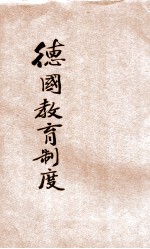 德國教育制度